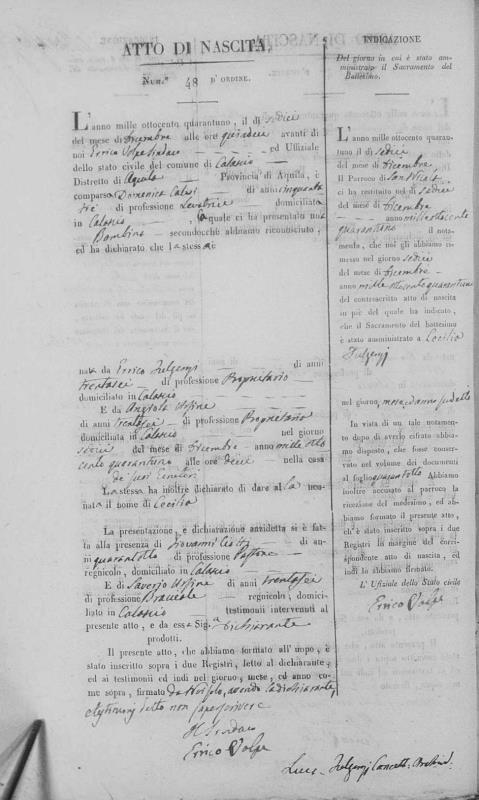 ATTO DI NASCITA.
Num.º 48 D'ORDINE.
L'anno mille ottocento quarantuno, il dì sedici
del mese di Dicembre alle ore quindici avanti di
noi Errico Volpe Sindaco ed Uffiziale
dello stato civile del comune di Calascio
Distretto di Aquila Provincia di Aquila, è
comparsa Domenica di anni cinquanta
tré di professione Levatrice domiciliata
in Calascio, la quale ci ha presentato una
Bambina secondocchè abbiamo riconosciuto,
ed ha dichiarato che la stessa è
nata da Errico Fulgenzj di anni
trentasei di professione Proprietario
domiciliato in Calascio
E da Angiola
di anni trentasei di professione Proprietaria
domiciliata in Calascio nel giorno
sedici del mese di Dicembre anno mille otto
cento quarantuno alle ore dieci nella casa
de' suoi Genitori
La stessa ha inoltre dichiarato di dare al la neo-
nata il nome di Cecilia
La presentazione, e dichiarazione anzidetta si è fat-
ta alla presenza di Giovanni di an-
ni quarantotto di professione Pastore
regnicolo, domiciliato in Calascio
E di Saverio di anni trentasei
di professione Bracciale regnicolo, domici-
liato in Calascio testimonii intervenuti al
presente atto, e da essa Sig.ª dichiarante
prodotti.
Il presente atto, che abbiamo formato all'uopo, è
stato inscritto sopra i due Registri, letto al dichiarante,
ed ai testimonii ed indi nel giorno, mese, ed anno co-
me sopra, firmato da Noi solo, avendo la dichiarante,
e testimonj detto non saper scrivere
Il Sindaco
Errico Volpe
INDICAZIONE
Del giorno in cui è stato am-
ministrato il Sacramento del
Battesimo.
L'anno mille ottocento quaran-
tuno il dì sedici
del mese di Dicembre
Il Parroco di San Nicola
ci ha restituito nel dì sedici
del mese di Dicembre
anno mille ottocento
quarantuno il nota-
mento, che noi gli abbiamo ri-
messo nel giorno sedici
del mese di Dicembre
anno mille ottocento quarantuno
del controscritto atto di nascita
in piè del quale ha indicato,
che il Sacramento del battesimo
è stato amministrato a Cecilia
Fulgenzj
nel giorno, mese, ed anno suddetto
In vista di un tale notamento
dopo di averlo cifrato abbiamo
disposto, che fosse conser-
vato nel volume dei documenti
al foglio quarantotto Abbiamo
inoltre accusato al parroco la
ricezione del medesimo, ed ab-
biamo formato il presente atto,
ch'è stato inscritto sopra i due
Registri in margine del corri-
spondente atto di nascita, ed
indi lo abbiamo firmato.
L'Uffiziale dello Stato civile
Errico Volpe
Luigi Fulgenzj Cancell.